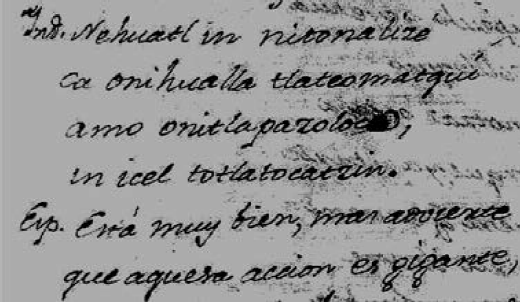 Ynd. Nehuatl in nitonalize
ca onihualla tlateomatqui
amo onitlapazoloco,
in icel totlatocatzin.
Esp. Está muy bien, mas advierte
que aquesa accion es gigante,